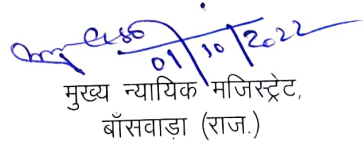 01/10/2022
मुख्य न्यायिक मजिस्ट्रेट,
बाँसवाड़ा (राज.)